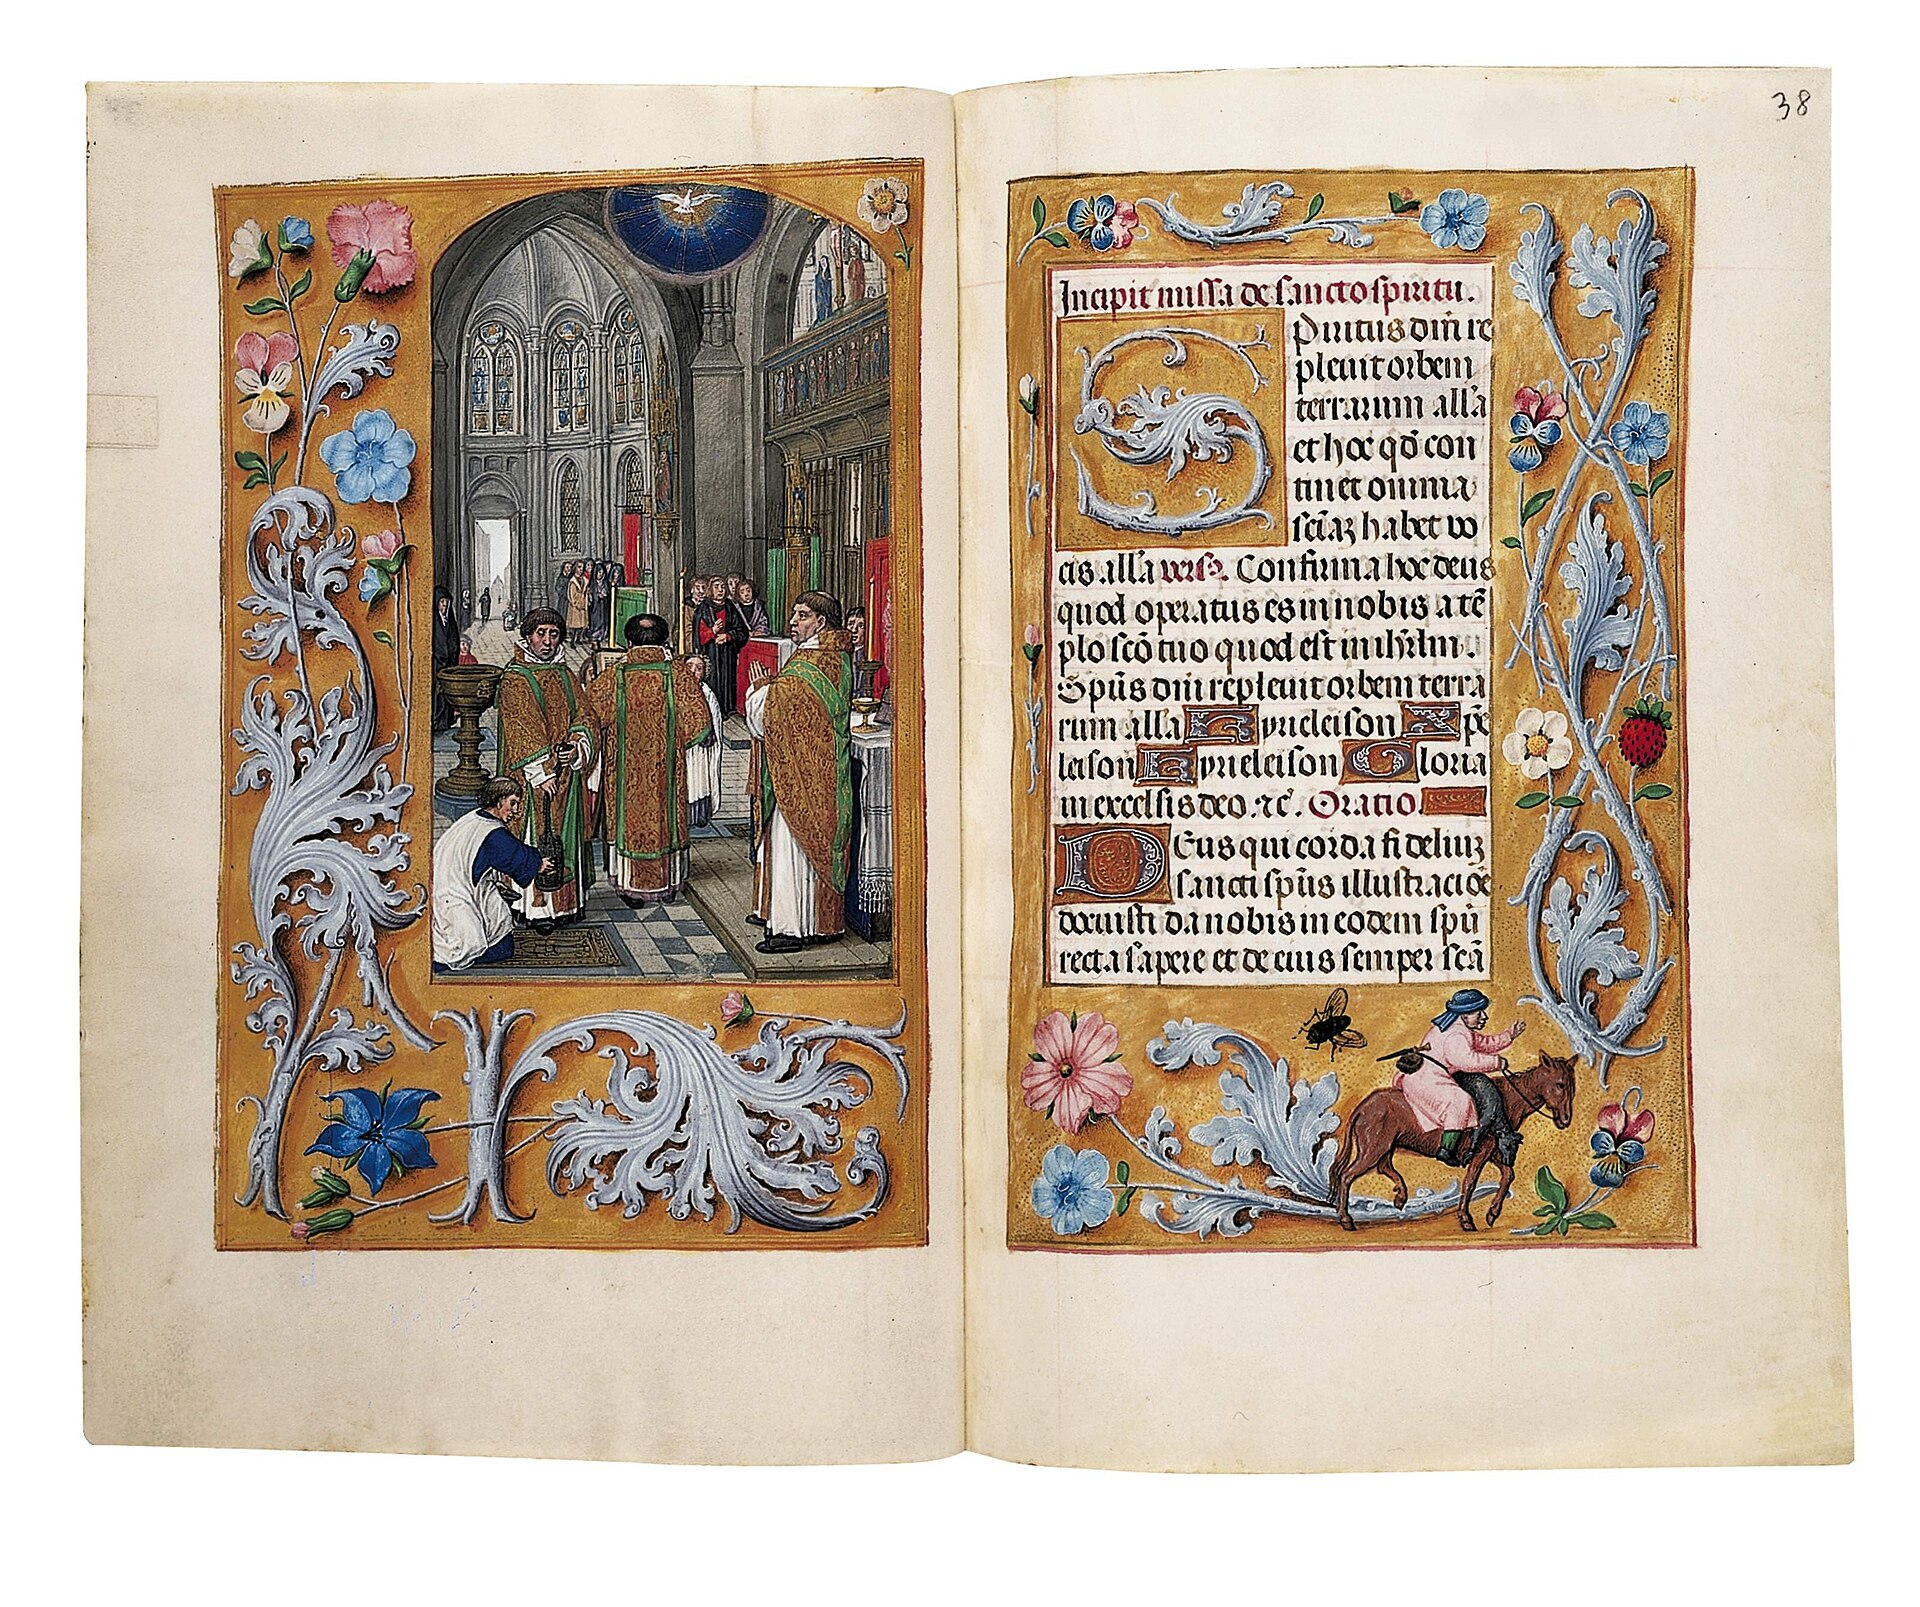 38
Incipit missa de sancto spiritu.
Spiritus dñi re
pleuit orbem
terrarum all'a
et hoc qd̄ con
tinet omnia
sciãꝫ habet vo
cis all'a vers9. Confirma hoc deus
quod operatus es in nobis a tē
plo scō tuo quod est in ihrlm.
Spūs dñi repleuit orbem terra
rum all'a Kyrieleison Xpē
leison Kyrieleison Gloria
in excelsis deo. ⁊c̃. Oratio.
Deus qui corda fideliuꝫ
sancti spūs illustracioē
docuisti da nobis in eodem spū
recta sapere et de eius semper scã